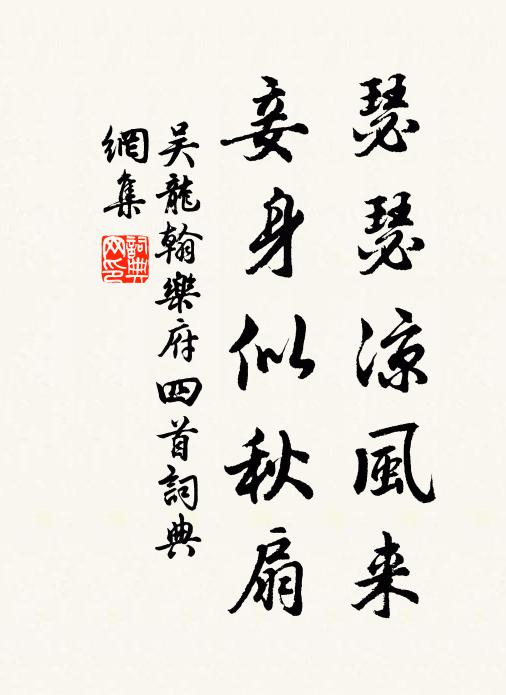 瑟瑟凉風来
妾身似秋扇
吴龍翰樂府四首詞典
網集
詞典
网印